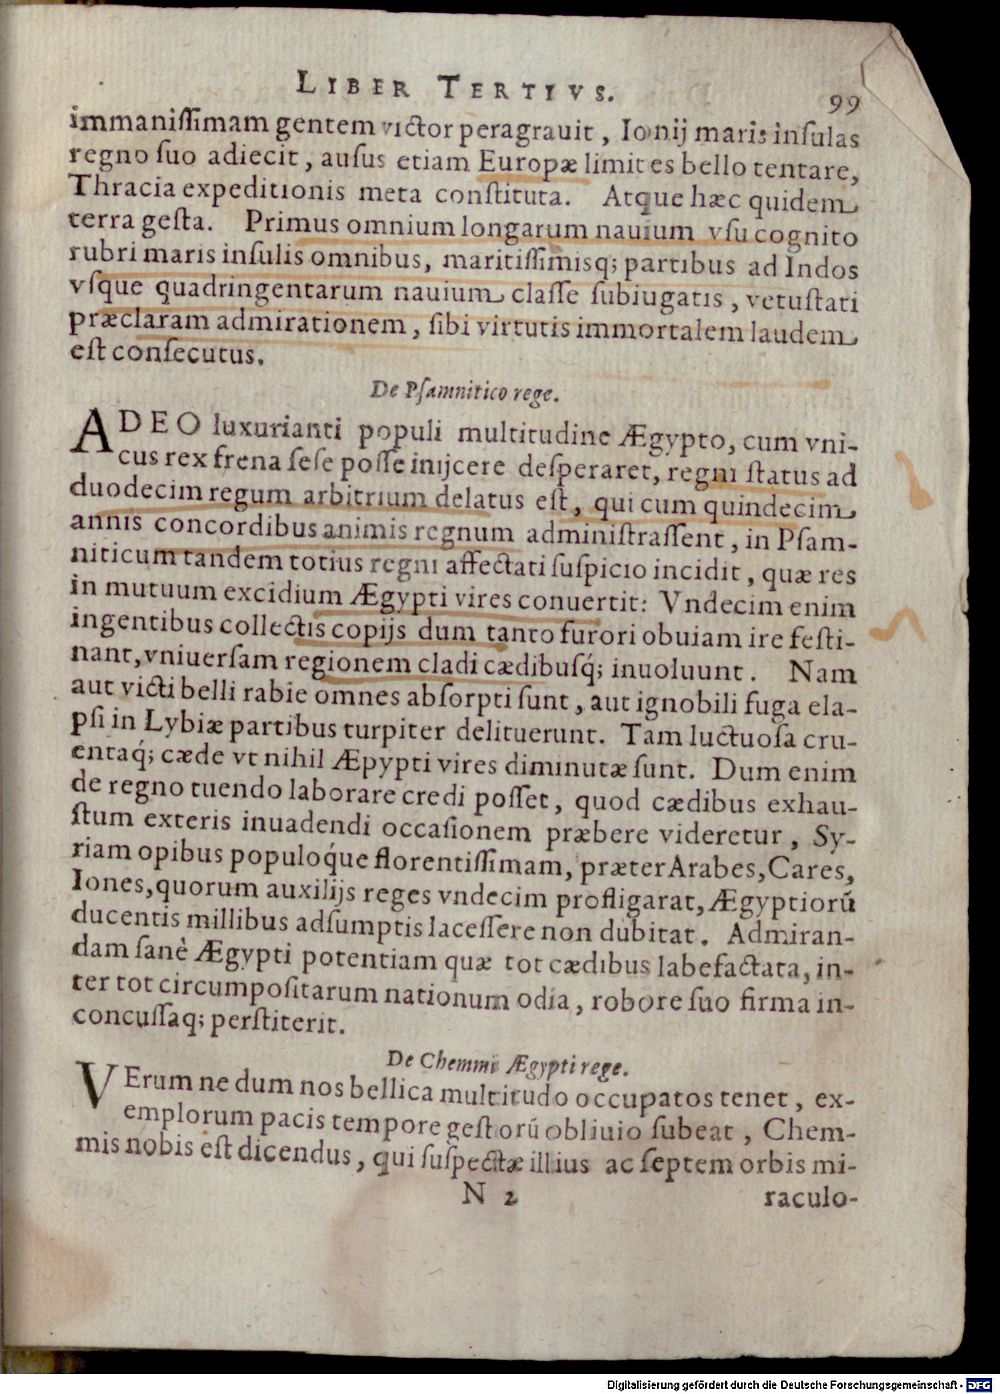 LIBER TERTIVS. 99
immaniſſimam gentem victor peragrauit, Ionij maris inſulas
regno ſuo adiecit, auſus etiam Europæ limites bello tentare,
Thracia expeditionis meta conſtituta. Atque hæc quidem
terra geſta. Primus omnium longarum nauium vſu cognito
rubri maris inſulis omnibus, maritiſſimisq; partibus ad Indos
vſque quadringentarum nauium claſſe ſubiugatis, vetuſtati
præclaram admirationem, ſibi virtutis immortalem laudem
eſt conſecutus.
De Pſamnitico rege.
ADEO luxurianti populi multitudine Ægypto, cum vni-
cus rex frena ſeſe poſſe inijcere deſperaret, regni ſtatus ad
duodecim regum arbitrium delatus eſt, qui cum quindecim
annis concordibus animis regnum adminiſtraſſent, in Pſam-
niticum tandem totius regni affectati ſuſpicio incidit, quæ res
in mutuum excidium Ægypti vires conuertit: Vndecim enim
ingentibus collectis copijs dum tanto furori obuiam ire feſti-
nant, vniuerſam regionem cladi cædibuſq́; inuoluunt. Nam
aut victi belli rabie omnes abſorpti ſunt, aut ignobili fuga ela-
pſi in Lybiæ partibus turpiter delituerunt. Tam luctuoſa cru-
entaq́; cæde vt nihil Æpypti vires diminutæ ſunt. Dum enim
de regno tuendo laborare credi poſſet, quod cædibus exhau-
ſtum exteris inuadendi occaſionem præbere videretur, Sy-
riam opibus populoq́ue florentiſſimam, præter Arabes, Cares,
Iones, quorum auxilijs reges vndecim profligarat, Ægyptiorū
ducentis millibus adſumptis laceſſere non dubitat. Admiran-
dam ſanè Ægypti potentiam quæ tot cædibus labefactata, in-
ter tot circumpoſitarum nationum odia, robore ſuo firma in-
concuſſaq; perſtiterit.
De Chemmi Ægypti rege.
VErum ne dum nos bellica multitudo occupatos tenet, ex-
emplorum pacis tempore geſtorū obliuio ſubeat, Chem-
mis nobis eſt dicendus, qui ſuſpectæ illius ac ſeptem orbis mi-
N 2 raculo-
Digitalisierung gefördert durch die Deutsche Forschungsgemeinschaft - DFG